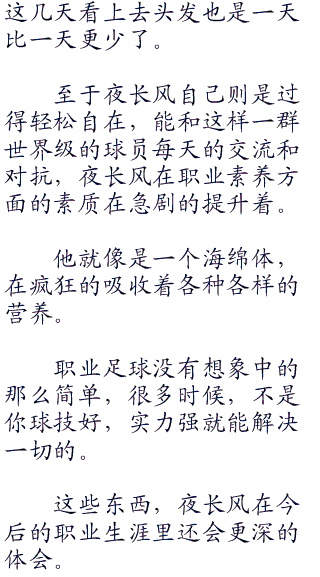 这几天看上去头发也是一天
比一天更少了。
至于夜长风自己则是过
得轻松自在，能和这样一群
世界级的球员每天的交流和
对抗，夜长风在职业素养方
面的素质在急剧的提升着。
他就像是一个海绵体，
在疯狂的吸收着各种各样的
营养。
职业足球没有想象中的
那么简单，很多时候，不是
你球技好，实力强就能解决
一切的。
这些东西，夜长风在今
后的职业生涯里还会更深的
体会。